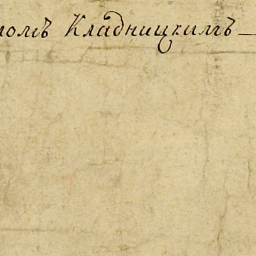 помъ Кладницкимъ